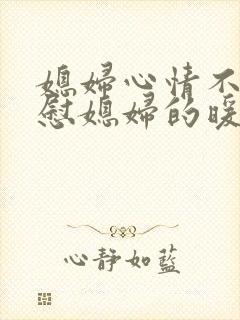 媳婦心情不
慰媳婦的暖
心静如蓝